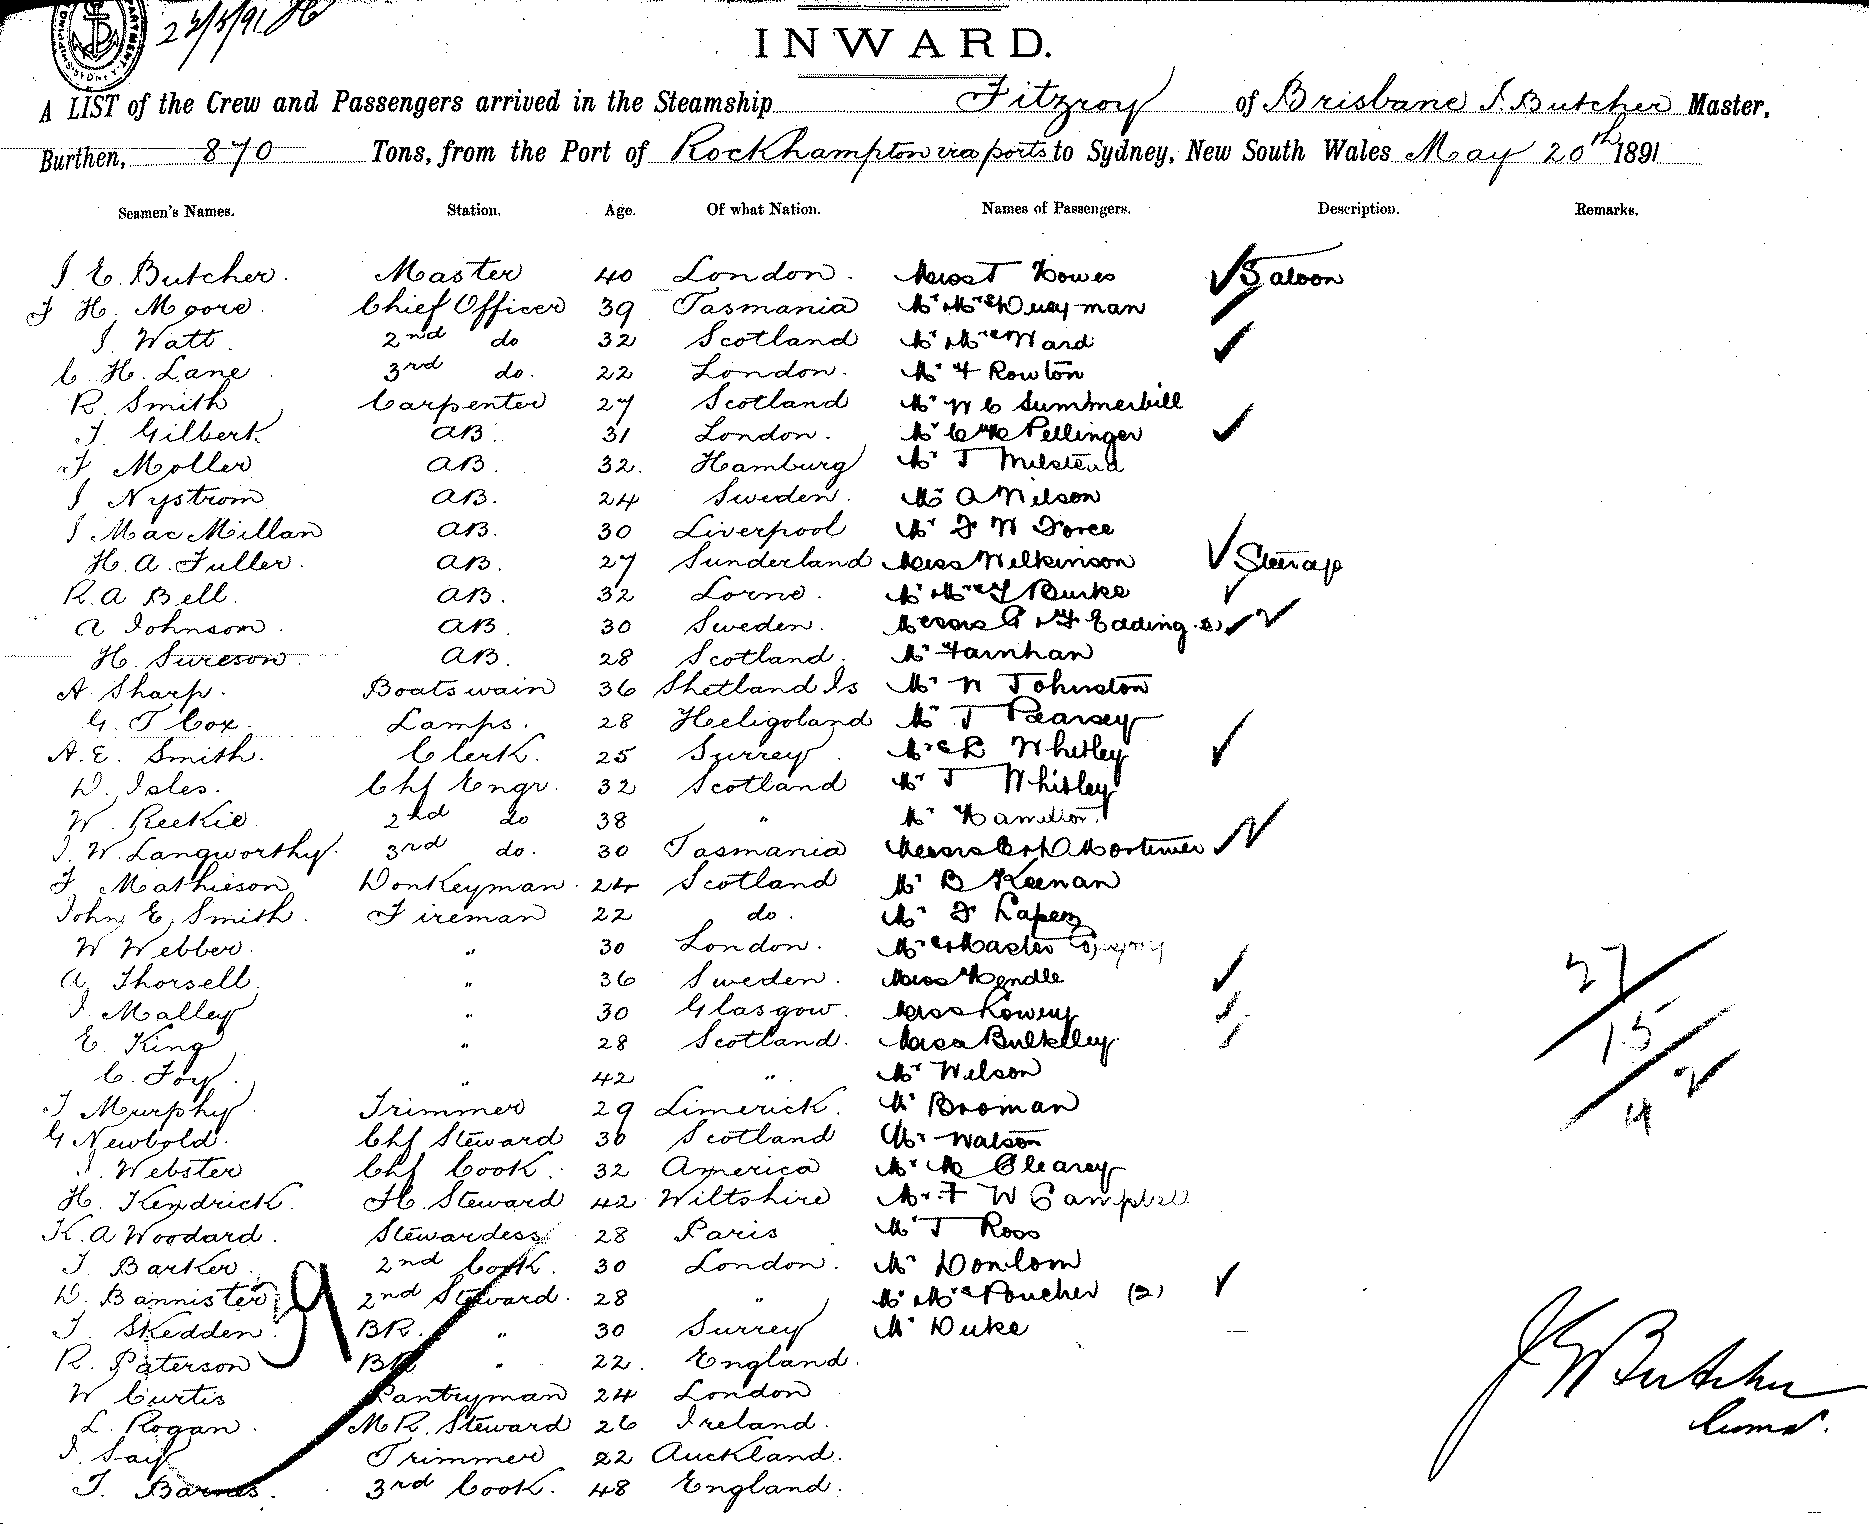 23/5/91
INWARD.
A LIST of the Crew and Passengers arrived in the Steamship Fitzroy of Brisbane J. Butcher Master,
Burthen, 870 Tons, from the Port of Rockhampton via ports to Sydney, New South Wales May 20th 1891
Seamen's Names. Station. Age. Of what Nation. Names of Passengers. Description. Remarks.
J. E. Butcher. Master 40 London. Howes Saloon
F H. Moore. Chief Officer 39 Tasmania Mr & Mrs
J. Watt. 2nd do 32 Scotland Mr & Mrs Ward
C. H. Lane 3rd do. 22 London. Mr F Rowton
R. Smith Carpenter 27 Scotland Mr W C Summerbill
J. Gilbert. AB. 31 London. Mr Pellinger
F. Moller AB. 32. Hamburg Mr T
J Nystrom AB. 24 Sweden. Mr A Nelson
J MacMillan AB. 30 Liverpool Mr F W Force
H. A. Fuller. AB. 27 Sunderland Miss Wilkinson Steerage
R. A Bell. AB. 32 Lorne. Mr & Mrs Burke
A Johnson. AB. 30 Sweden. Messrs
H. Sureson. AB. 28 Scotland. Mr Farnhan
A. Sharp. Boatswain 36 Shetland Is Mr W Johnston
G. T Cox. Lamps. 28 Heligoland Mr T Pearsey
A. E. Smith. Clerk. 25 Surrey Whitley
D. Isles. Chf Engr. 32 Scotland Mr T Whitley
W. Reekie. 2nd do 38 " Mr Hamilton
J. W. Langworthy. 3rd do. 30 Tasmania Messrs Mortimer
F. Mathieson Donkeyman. 24 Scotland Mr B Keenan
John E. Smith. Fireman 22 do. Mr F Lapez
W Webber. " 30 London. Master
A. Thorsell. " 36 Sweden. Miss Hendle
J. Malley " 30 Glasgow. Miss
E. King " 28 Scotland. Miss Bulkeley
C. Foy. " 42 " Mr Wilson
J Murphy. Trimmer 29 Limerick. Mr Broman
G Newbold. Chf Steward 30 Scotland Mr Watson
J. Webster Chf Cook. 32 America Mr M Cleary
H. Kendrick. H. Steward 42 Wiltshire Mr F W Campbell
K. A Woodard. Stewardess 28 Paris Mr T Ross
J. Barker. 2nd Cook. 30 London. Mr
D. Bannister 2nd Steward. 28 " Mr & Mrs Poucher (2)
J. Skedden. BR. " 30 Surrey Mr Duke
R. Paterson BR " 22. England.
W Curtis Pantryman 24 London
L. Rogan. M R. Steward 26 Ireland.
J. Trimmer 22 Auckland.
T. Barnes. 3rd Cook. 48 England.
39
27
15
4 2
Butcher